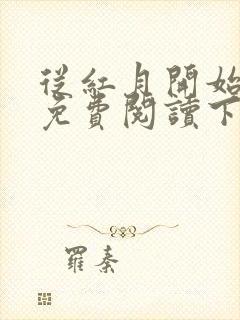 從紅月開始
免費閱讀下
羅秦